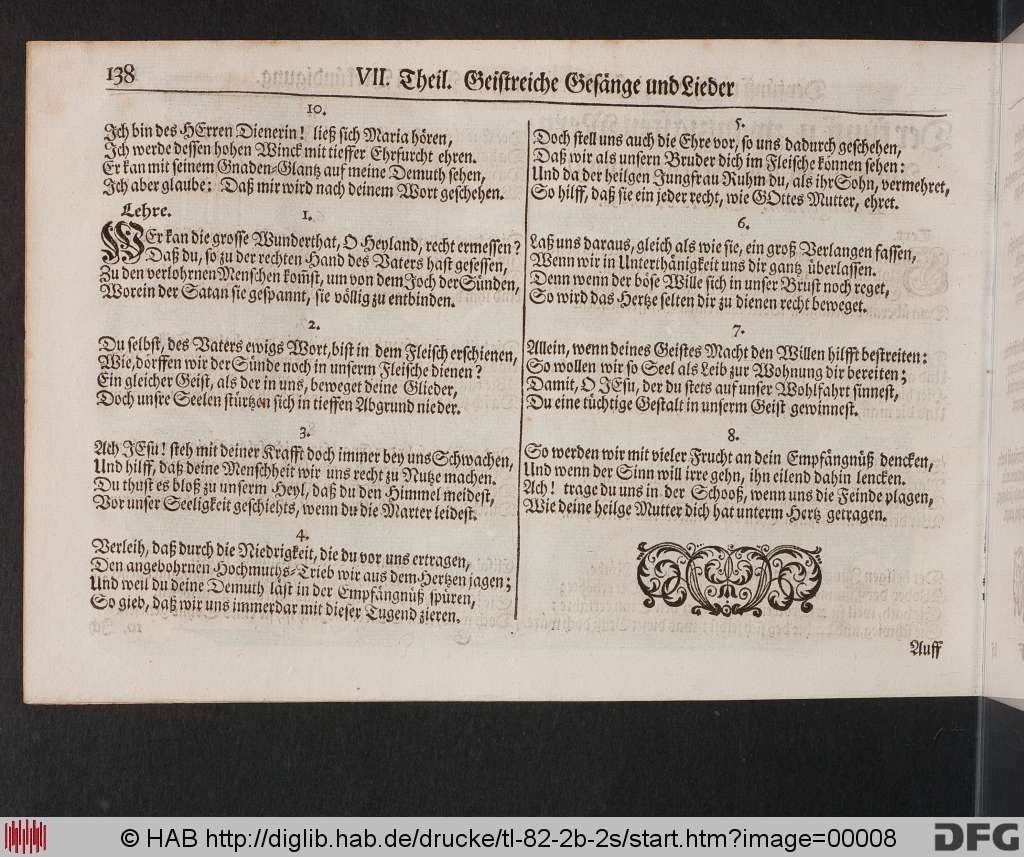 138
VII. Theil. Geistreiche Gesänge und Lieder
10.
Ich bin des HErren Dienerin! ließ sich Maria hören,
Ich werde dessen hohen Winck mit tieffer Ehrfurcht ehren.
Er kan mit seinem Gnaden-Glantz auf meine Demuth sehen,
Ich aber glaube: Daß mir wird nach deinem Wort geschehen.
Lehre.
1.
WEr kan die grosse Wunderthat, O Heyland, recht ermessen?
Daß du, so zu der rechten Hand des Vaters hast gesessen,
Zu den verlohrnen Menschen kom̃st, um von dem Joch der Sünden,
Worein der Satan sie gespannt, sie völlig zu entbinden.
2.
Du selbst, des Vaters ewigs Wort, bist in dem Fleisch erschienen,
Wie, dörffen wir der Sünde noch in unserm Fleische dienen?
Ein gleicher Geist, als der in uns, beweget deine Glieder,
Doch unsre Seelen stürtzen sich in tieffen Abgrund nieder.
3.
Ach JEsu! steh mit deiner Krafft doch immer bey uns Schwachen,
Und hilff, daß deine Menschheit wir uns recht zu Nutze machen.
Du thust es bloß zu unserm Heyl, daß du den Himmel meidest,
Vor unser Seeligkeit geschiehts, wenn du die Marter leidest.
4.
Verleih, daß durch die Niedrigkeit, die du vor uns ertragen,
Den angebohrnen Hochmuths-Trieb wir aus dem Hertzen jagen;
Und weil du deine Demuth läst in der Empfängnüß spüren,
So gieb, daß wir uns immerdar mit dieser Tugend zieren.
5.
Doch stell uns auch die Ehre vor, so uns dadurch geschehen,
Daß wir als unsern Bruder dich im Fleische können sehen:
Und da der heilgen Jungfrau Ruhm du, als ihr Sohn, vermehret,
So hilff, daß sie ein jeder recht, wie GOttes Mutter, ehret.
6.
Laß uns daraus, gleich als wie sie, ein groß Verlangen fassen,
Wenn wir in Unterthänigkeit uns dir gantz überlassen.
Denn wenn der böse Wille sich in unser Brust noch reget,
So wird das Hertze selten dir zu dienen recht beweget.
7.
Allein, wenn deines Geistes Macht den Willen hilfft bestreiten:
So wollen wir so Seel als Leib zur Wohnung dir bereiten;
Damit, O JEsu, der du stets auf unser Wohlfahrt sinnest,
Du eine tüchtige Gestalt in unserm Geist gewinnest.
8.
So werden wir mit vieler Frucht an dein Empfängnüß dencken,
Und wenn der Sinn will irre gehn, ihn eilend dahin lencken.
Ach! trage du uns in der Schooß, wenn uns die Feinde plagen,
Wie deine heilge Mutter dich hat unterm Hertz getragen.
Auff
© HAB http://diglib.hab.de/drucke/tl-82-2b-2s/start.htm?image=00008
DFG